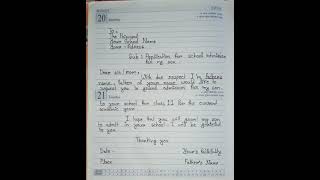 20
To
The Principal
Your School Name
Your Address
Sub : Application for school admission
for my son.
Dear sir/mam,
With due respect I Mr. father's
name, father of your name would like to
request you to grant admission for my son
21
to your school for class 11 for the current
academic year.
I hope that you will grant my son
to admit in your school. I will be grateful
to you
Thanking you
Date - Your's faithfully
Place Father's Name